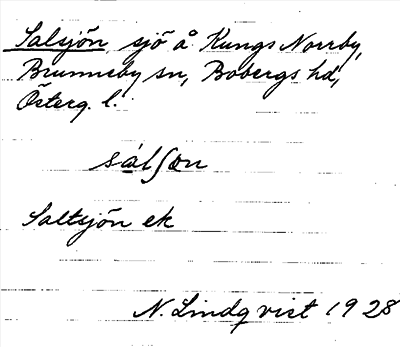 Salsjön, sjö å Kungs Norrby,
Brunneby sn, Bobergs hd,
Österg. l.
sálʃon
Saltsjön ek
N. Lindqvist 1928